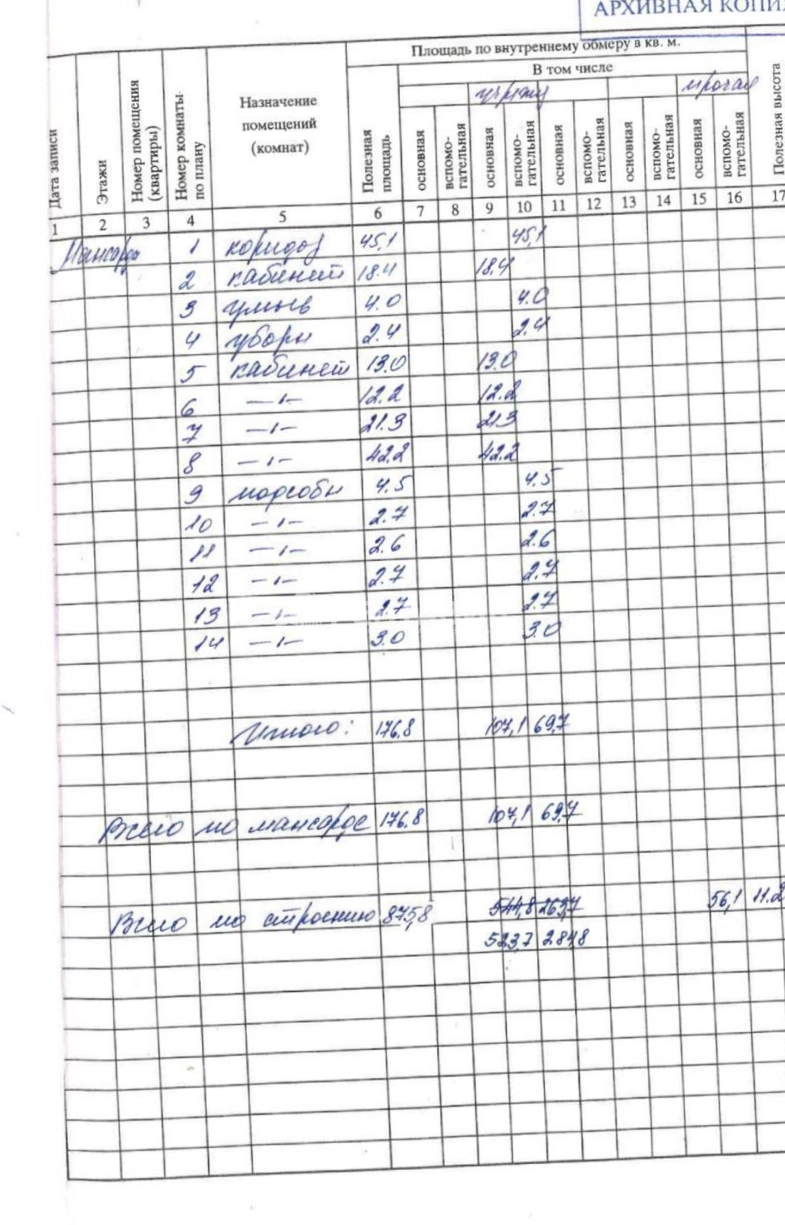 АРХИВНАЯ КОПИ
Площадь по внутреннему обмеру в кв. м.
В том числе
учрежд прочая
Дата записи Этажи Номер помещения (квартиры) Номер комнаты по плану Назначение помещений (комнат) Полезная площадь основная вспомо-гательная основная вспомо-гательная основная вспомо-гательная основная вспомо-гательная основная вспомо-гательная Полезная высота
1 2 3 4 5 6 7 8 9 10 11 12 13 14 15 16 17
Мансарда 1 коридор 45,1 45,1
2 кабинет 18.4 18,4
3 умыв 4.0 4.0
4 уборн 2.4 2.4
5 кабинет 13.0 13.0
6 —〃— 12.2 12.2
7 —〃— 21.3 21.3
8 —〃— 42.2 42.2
9 подсобн 4.5 4.5
10 —〃— 2.7 2.7
11 —〃— 2.6 2.6
12 —〃— 2.7 2.7
13 —〃— 2.7 2.7
14 —〃— 3.0 3.0
Итого: 176,8 107,1 69,7
Всего по мансарде 176,8 107,1 69,7
Всего по строению 875,8 544,8 263,7 56,1 11.2
523,7 284,8